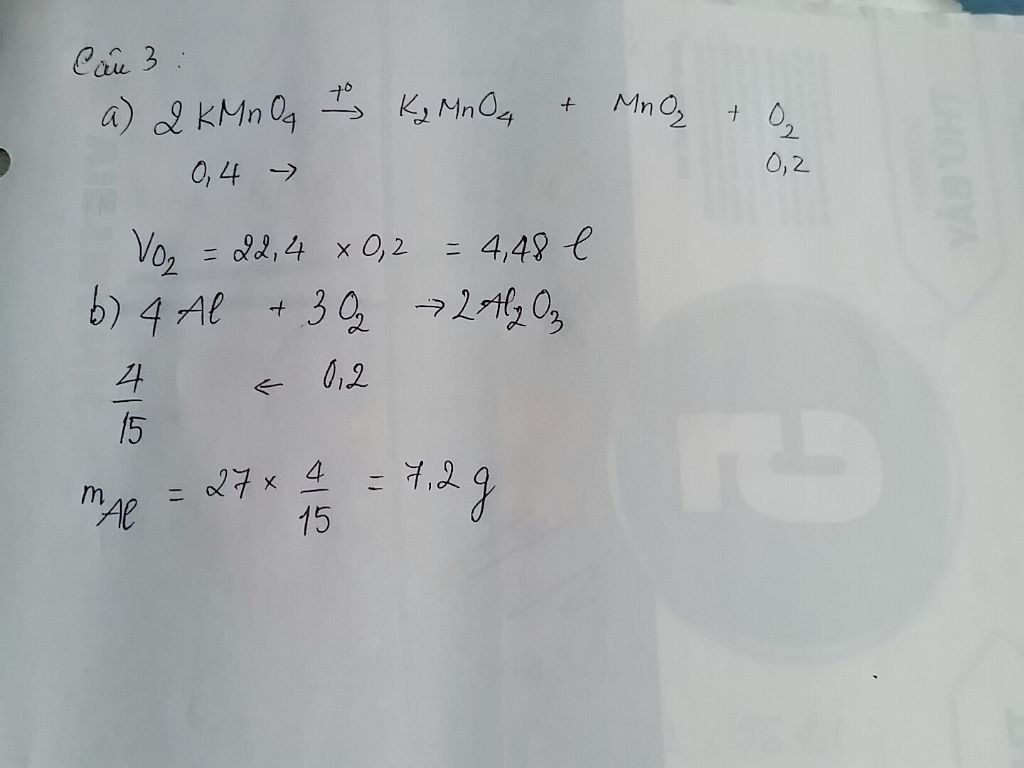 Câu 3 :
a) 2 KMnO4 t° → K2MnO4 + MnO2 + O2
0,4 → 0,2
VO2 = 22,4 × 0,2 = 4,48 l
b) 4 Al + 3 O2 → 2 Al2O3
4/15 ← 0,2
mAl = 27 × 4/15 = 7,2 g
THỨ BẢY